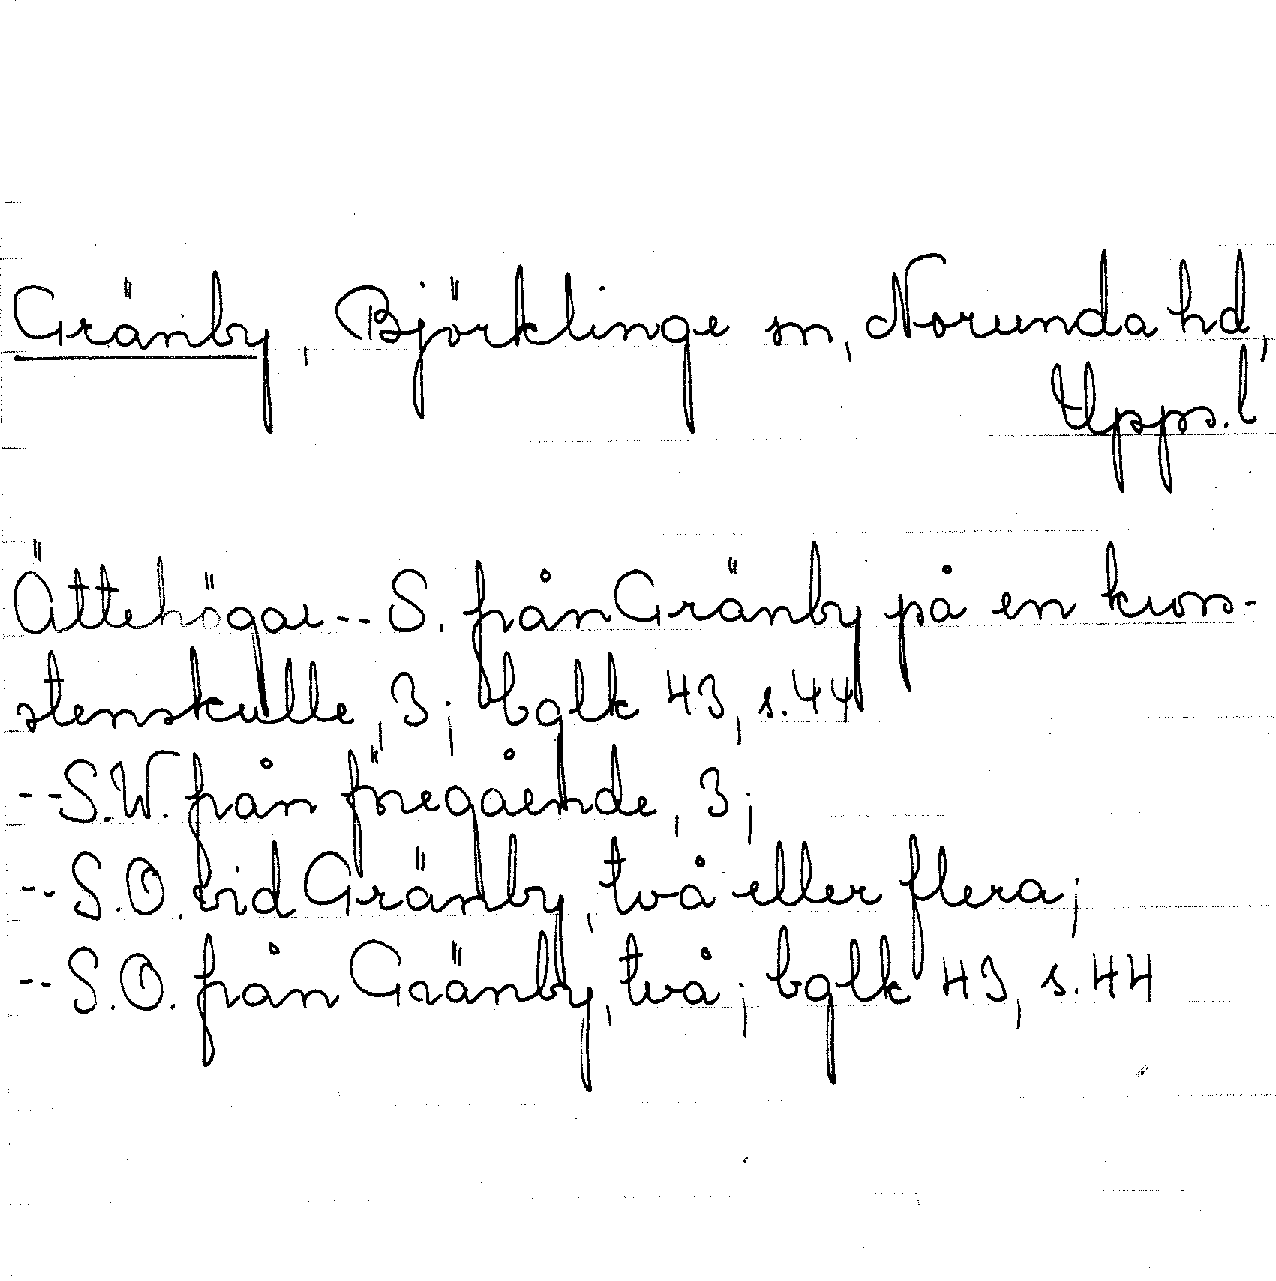 Gränby, Björklinge sn, Norunda hd,
Upps.l
Ättehögar -- S. från Gränby på en kross-
stenskulle, 3; bglk 43, s.44
-- S.W. från föregående, 3;
-- S.O. vid Gränby, två eller flera;
-- S.O. från Gränby, två; bglk 43, s.44